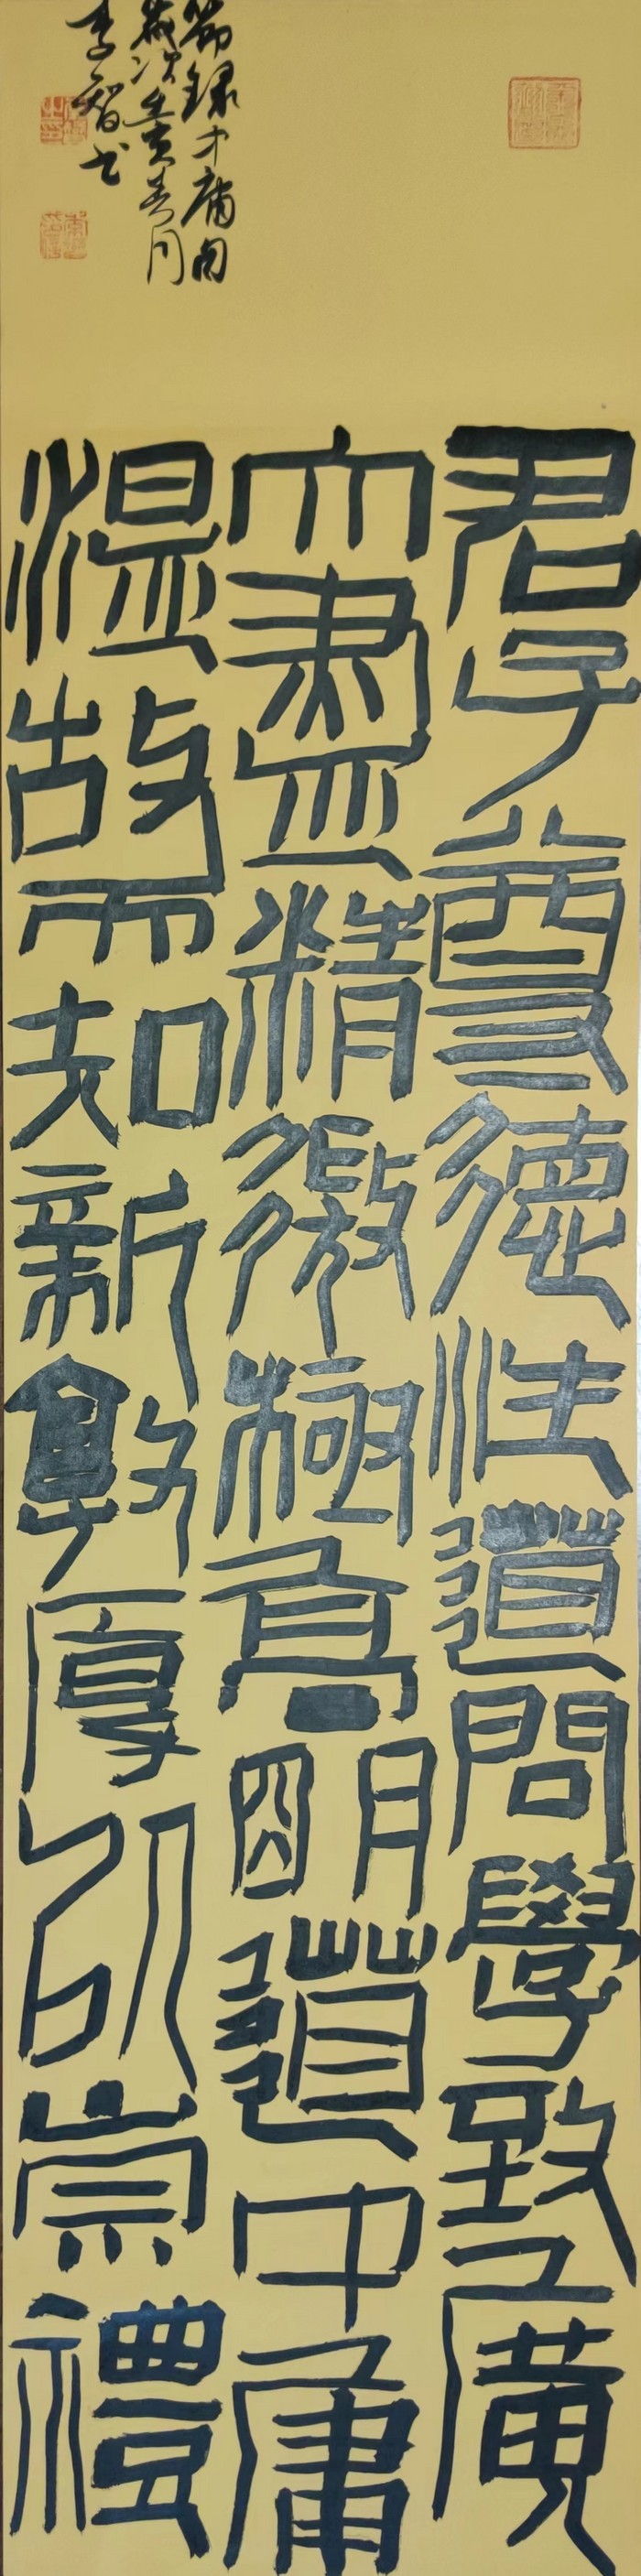 君子尊德性道問學致廣
大盡精微極高明道中庸
溫故而知新敦厚以崇禮
節錄中庸句
歲次壬寅春月
李智书